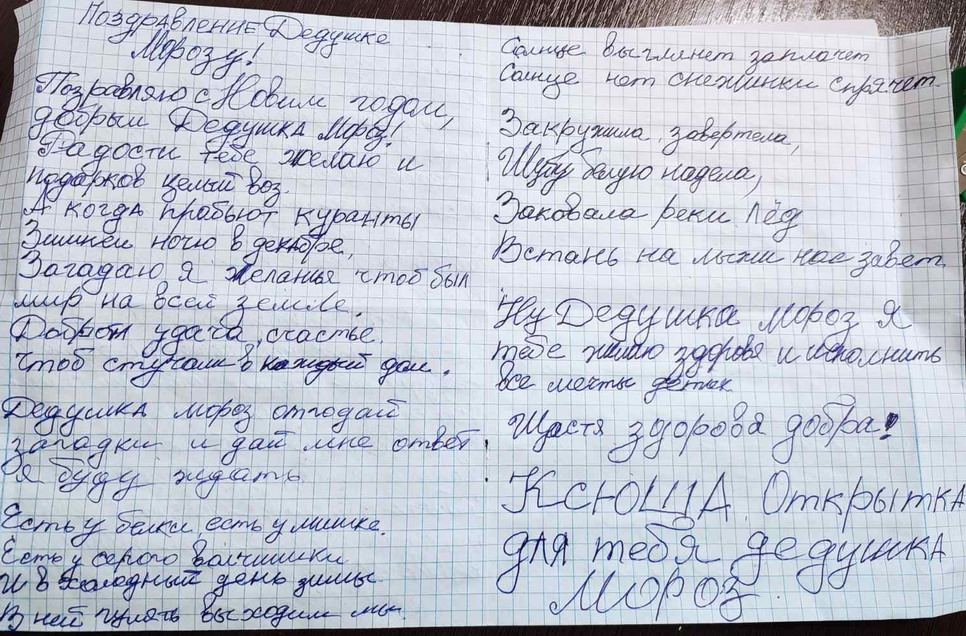 Поздравление Дедушке
Морозу!
Позравляю с Новым годом,
добрый Дедушка Мороз!
Радости тебе желаю и
подарков целый воз.
А когда прабьют куранты
Зимней ночю в декабре,
Загадаю я желанья чтоб был
мир на всей земле.
Доброта удача, счастье.
чтоб стучали в каждый дом.
Дедушка мороз отгодай
загадки и дай мне ответ
я буду ждать
Есть у белки, есть у мишке.
Есть у серого волчишики
И в холодный день зимы
В ней гулять выходим мы.
Солнце выглянет заплачет
Солнце нет снежинки спрячет.
Закружила, завертела,
Шубу белую надела,
Заковала реки лёд
Встань на лыжи нас завет.
Ну Дедушка мороз я
тебе жилаю здоровя и исполнить
все мечты деток
Щастя здорова добра!
Ксюша Открытка
для тебя дедушка
Мороз.